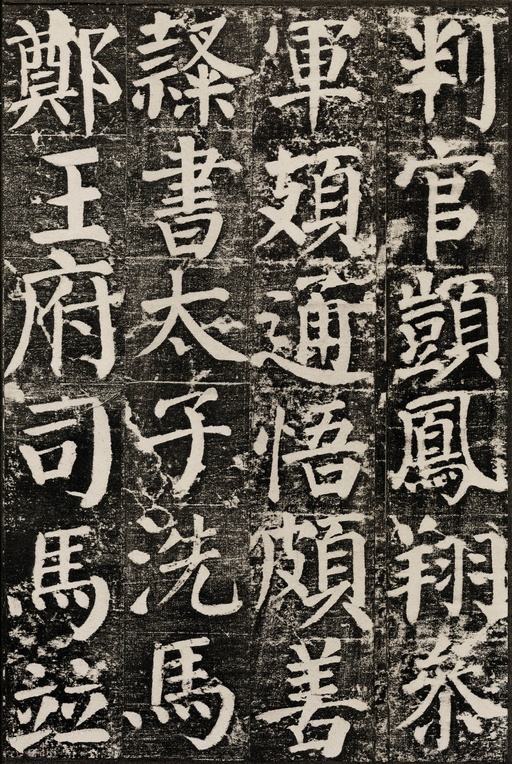 判官顗鳳翔叅
軍頍通悟頗善
隸書太子洗馬
鄭王府司馬竝